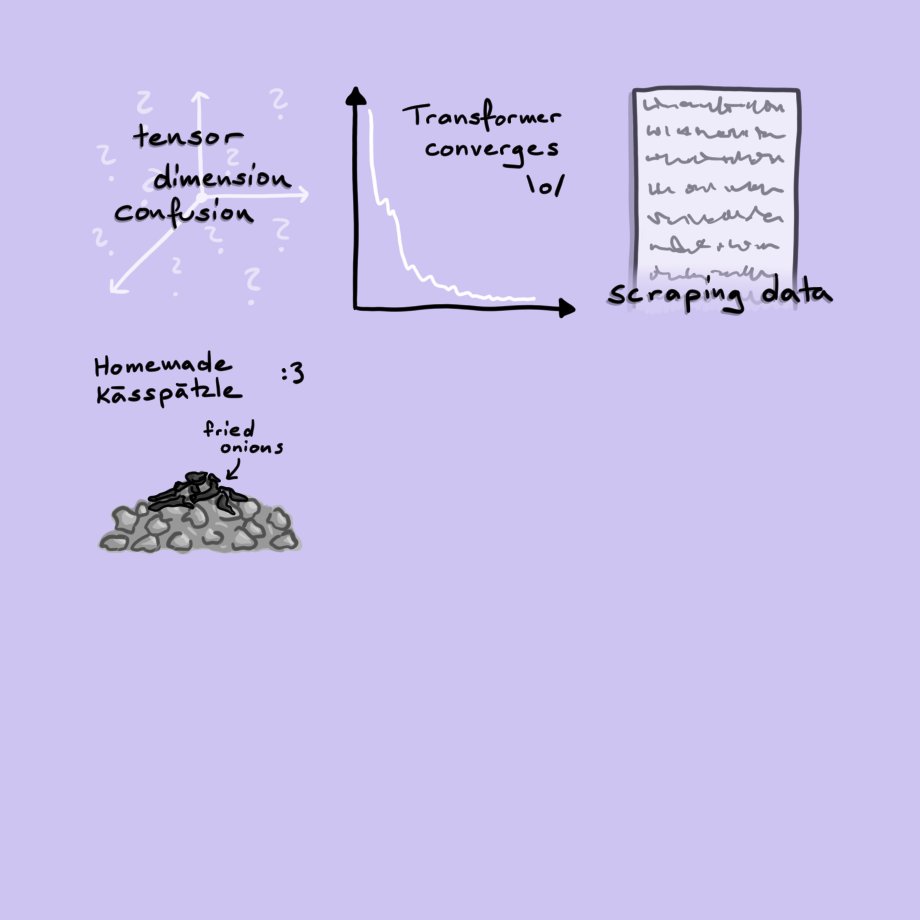 tensor
dimension
confusion
Transformer
converges
\o/
scraping data
Homemade
Kässpätzle
:3
fried
onions